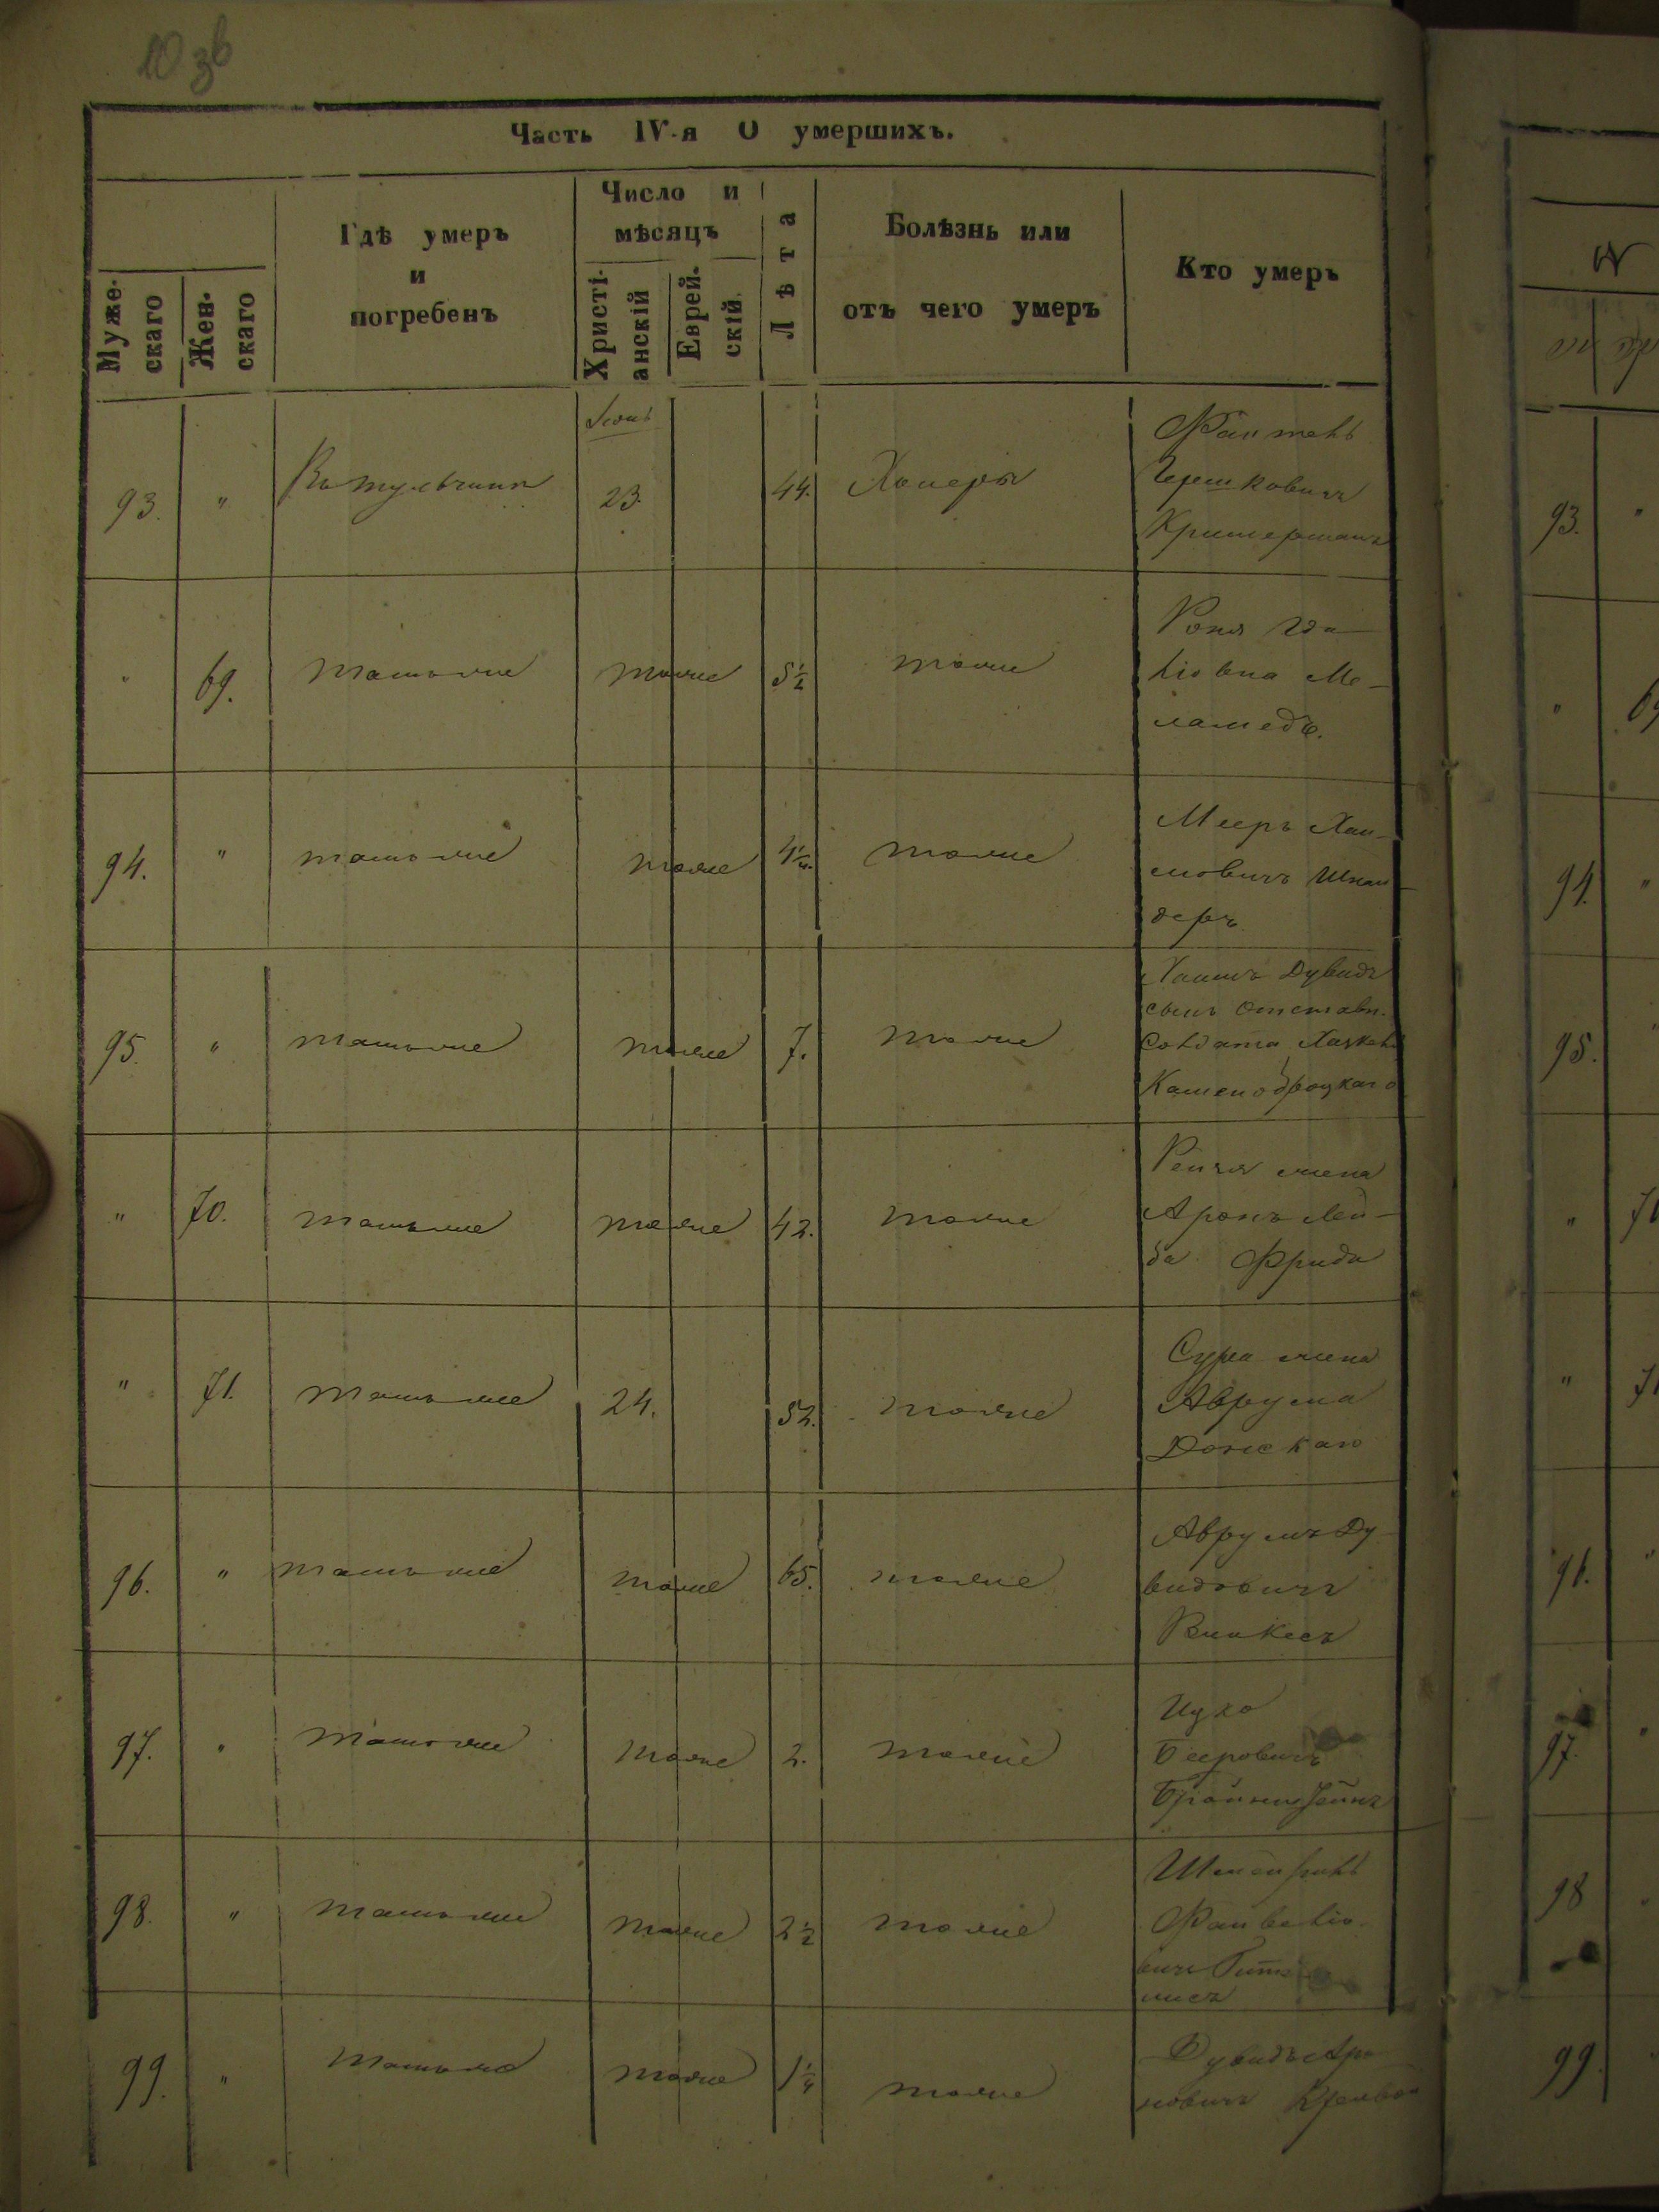 10 зв
Часть IV-я О умершихъ.
Муже-
скаго
Жен-
скаго
Гдѣ умеръ
и
погребенъ
Число и
мѣсяцъ
Христі-
анскій
Еврей-
скій
Лѣта
Болѣзнь или
отъ чего умеръ
Кто умеръ
93. " Въ Тульчинѣ Іюнь 23. 44. Холеры
Файтель
Гершковичъ
" 69. тамъ же тоже 5½ тоже
Роня Ида
ліовна Ме-
ламедъ.
94. " тамъ же тоже 4¼. тоже
Мееръ Хаи-
мовичъ Шнай-
деръ
95. " тамъ же тоже 7. тоже
Хаимъ Дувидъ
сынъ Отставн.
Солдата Хацкеля
Каменобродскаго
" 70. тамъ же тоже 42. тоже
Рейзя жена
Аронъ Лей-
ба Фрида
" 71. тамъ же 24. 52. тоже
Сура жена
Аврума
Донскаго
96. " тамъ же тоже 65. тоже
Аврумъ Ду-
видовичъ
97. " тамъ же тоже 2. тоже
Ицхо
Бееровичъ
98. " тамъ же тоже 2½ тоже
Файвеліо-
вичъ
99. " тамъ же тоже 1¼ тоже
Дувидъ Аро-
новичъ
93. "
" 69
94. "
95. "
" 70
" 71
96. "
97. "
98 "
99.